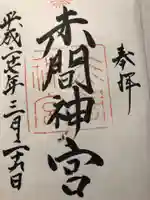 奉拝
赤間神宮
平成廿七年三月二十一日